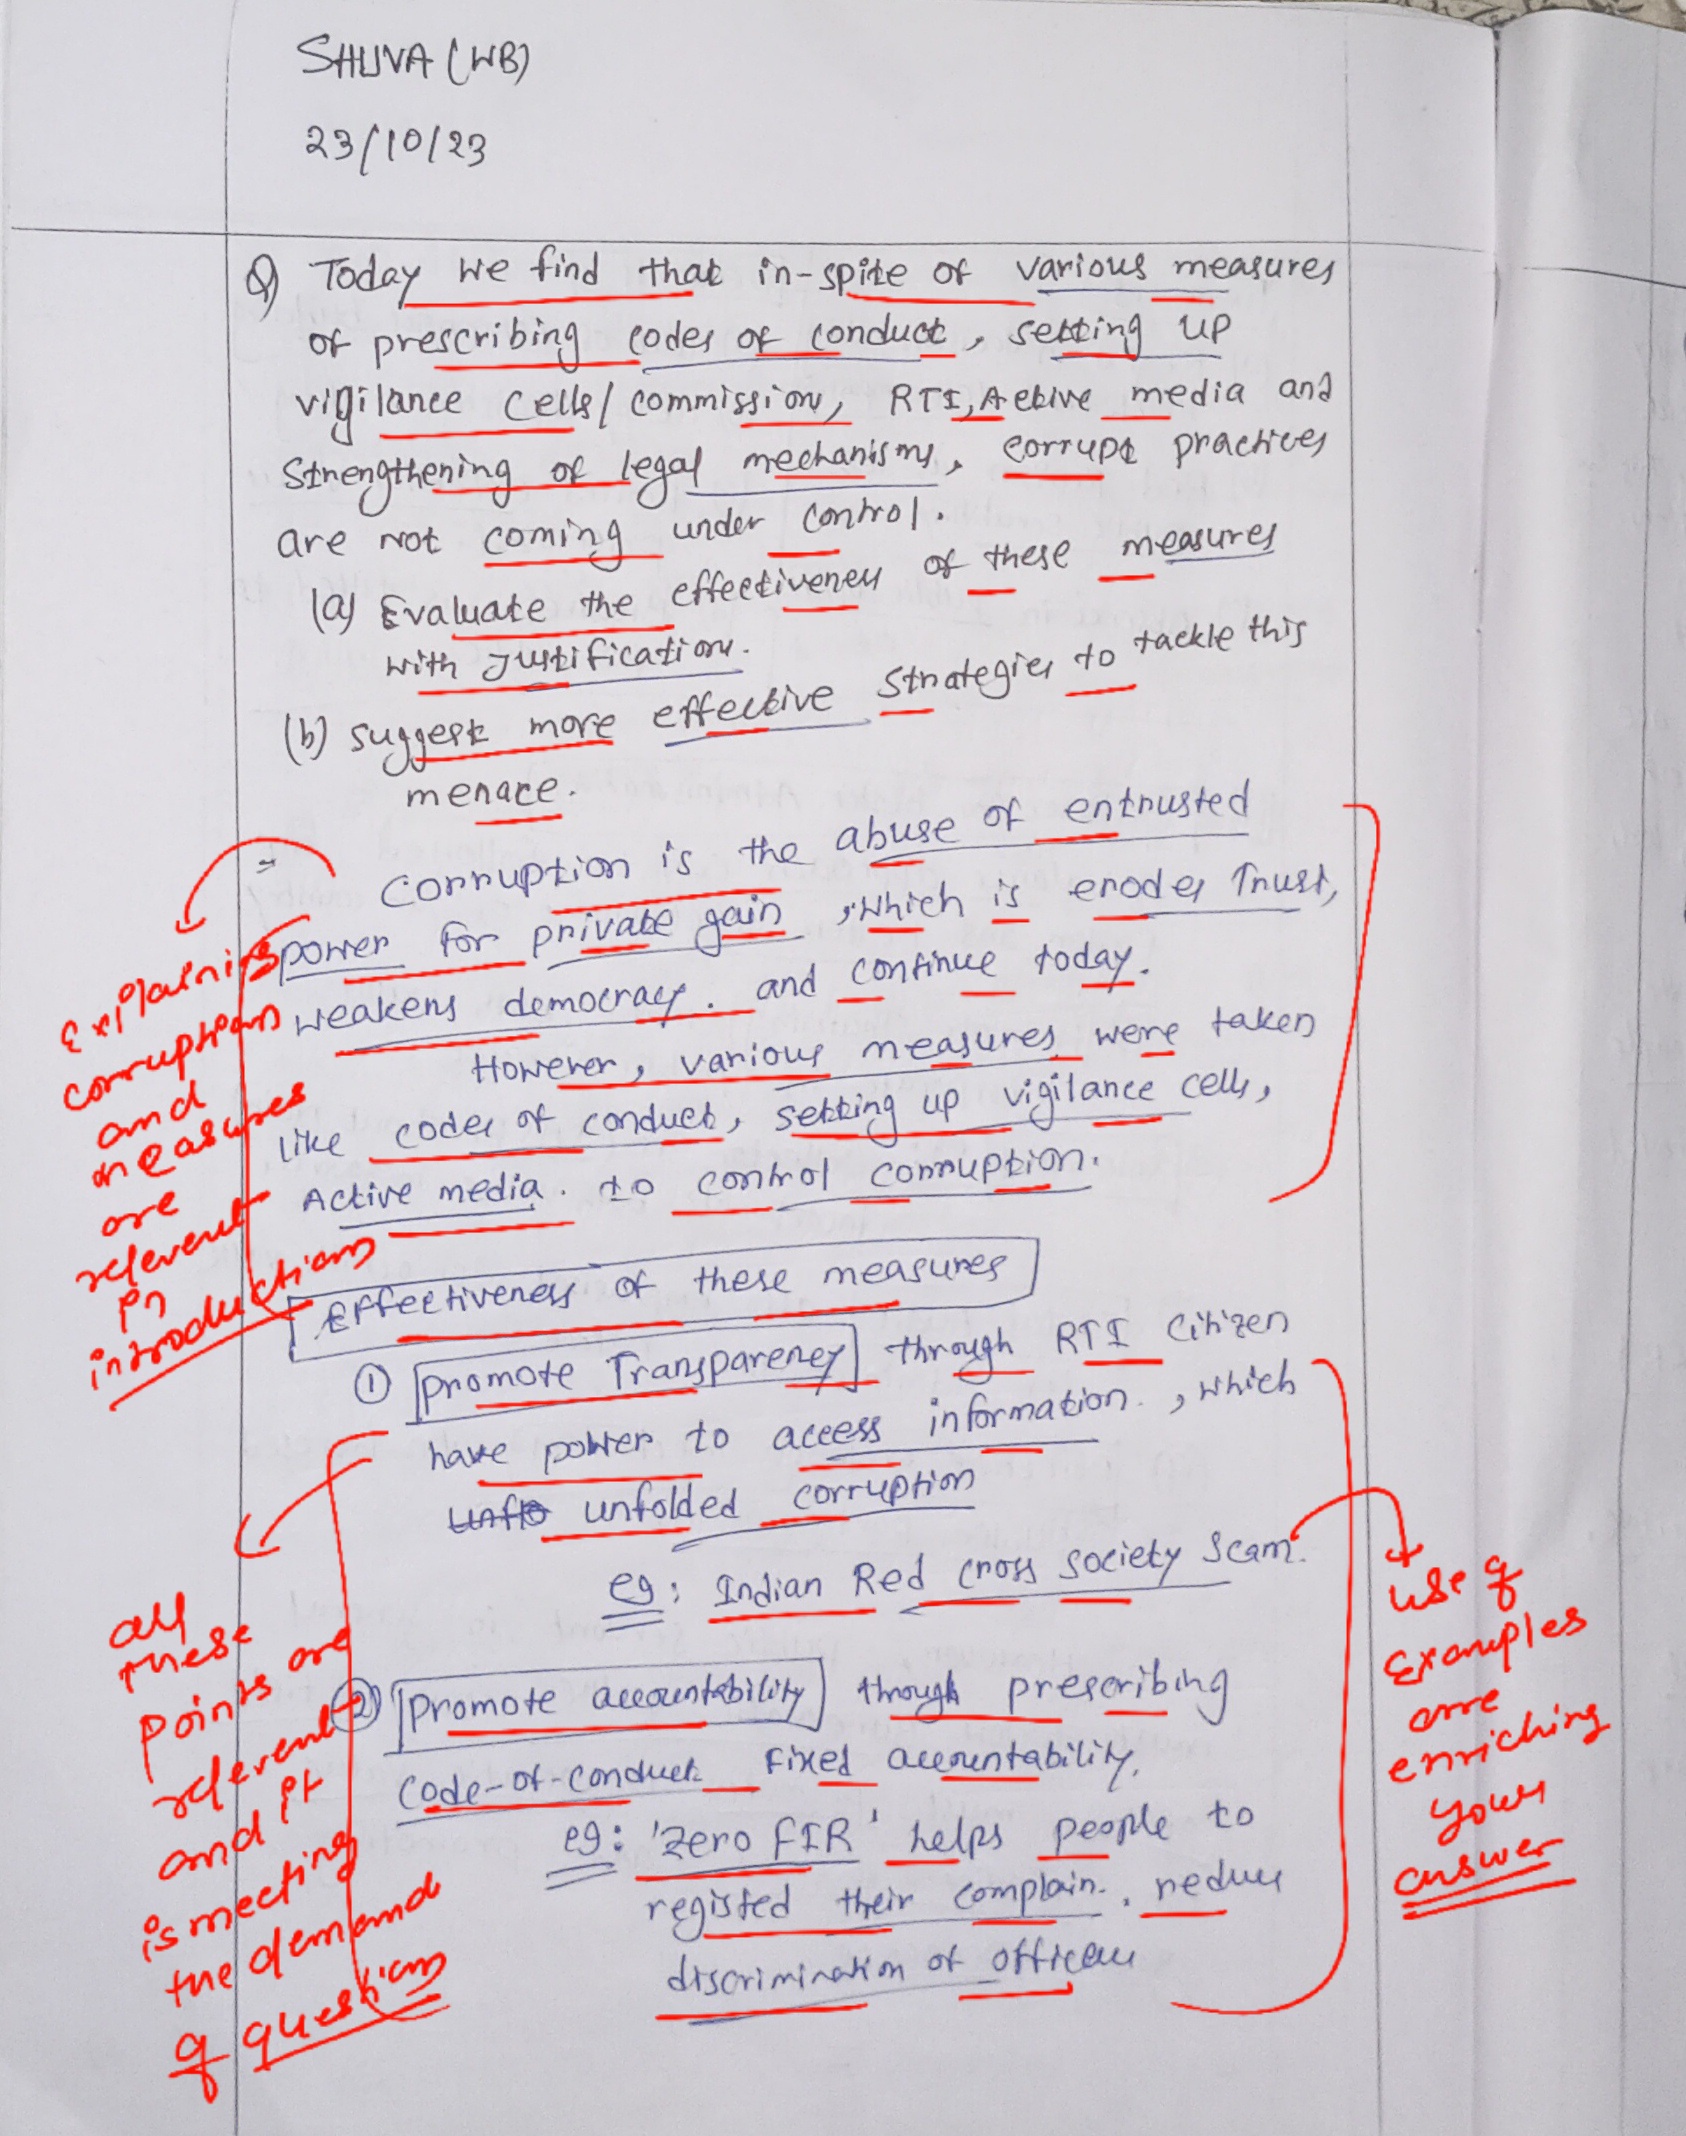 SHUVA (WB)
23/10/23
Q) Today we find that in-spite of various measures
of prescribing codes of conduct, setting up
vigilance cells/commission, RTI, Active media and
Strengthening of legal mechanisms, corrupt practices
are not coming under control.
(a) Evaluate the effectiveness of these measures
with justification.
(b) suggest more effective strategies to tackle this
menace.
Corruption is the abuse of entrusted
power for private gain, which is erodes Trust,
weakens democracy. and continue today.
However, various measures were taken
like codes of conduct, setting up vigilance cells,
Active media. to control corruption.
Explaining
corruption
and
measures
are
relevent
in
introductions
Effectiveness of these measures
① promote Transparency through RTI citizen
have power to access information., which
unfo unfolded corruption
eg: Indian Red cross society scam.
② Promote accountability through prescribing
code-of-conduct fixed accountability.
eg: 'Zero FIR' helps people to
registed their complain., reduce
discrimination of officers
all
these
points are
relevent
and it
is meeting
the demand
of question
use of
Examples
are
enriching
your
answer